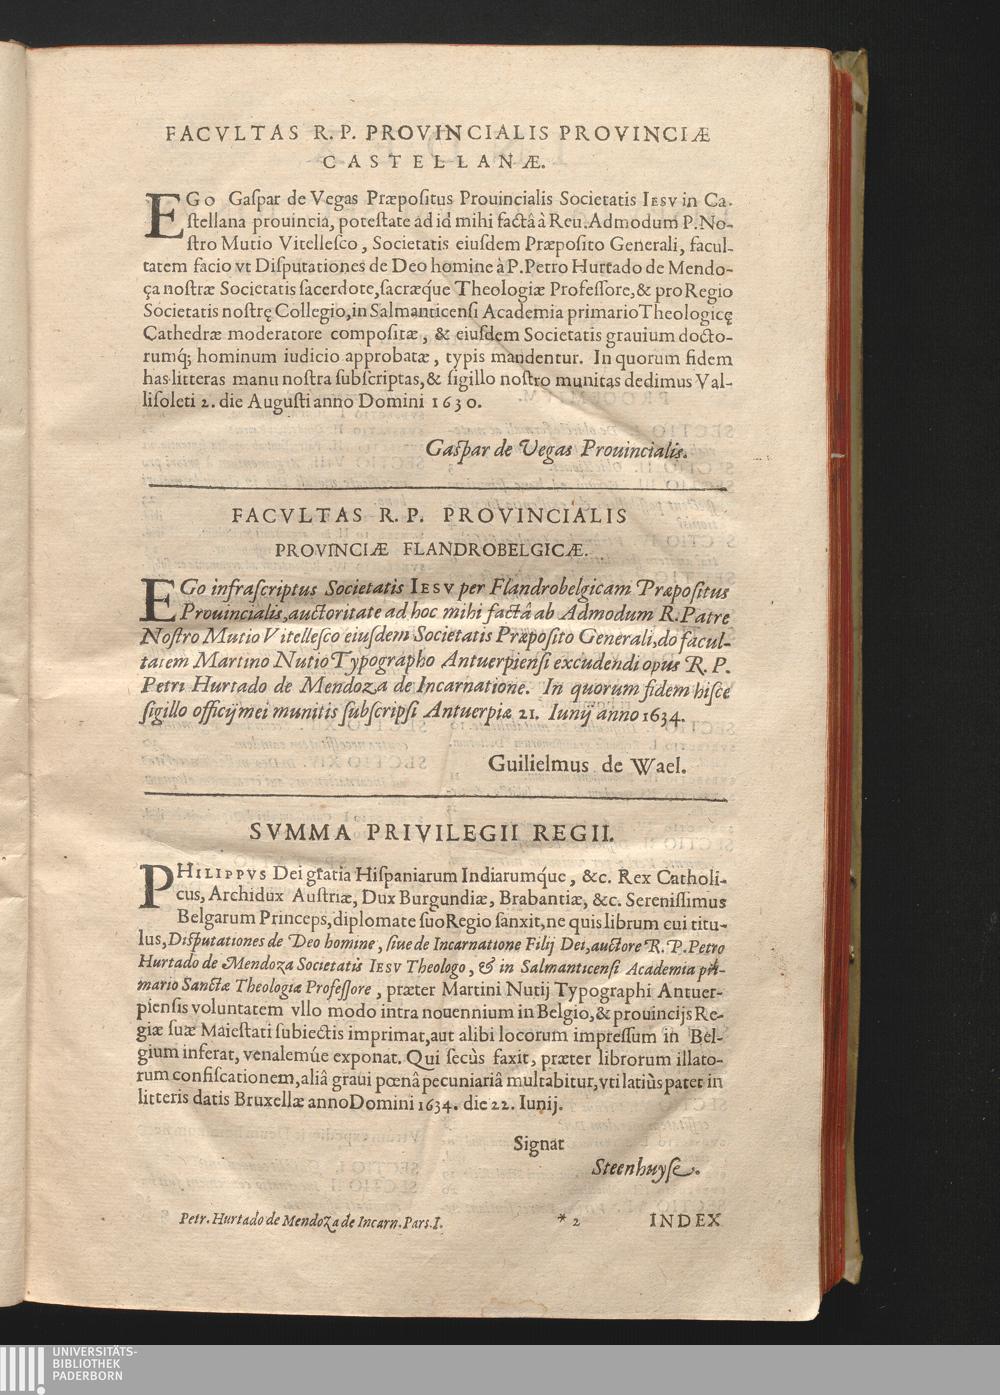 FACVLTAS R. P. PROVINCIALIS PROVINCIÆ
CASTELLANÆ.
EGo Gaſpar de Vegas Præpoſitus Prouincialis Societatis IESV in Ca-
ſtellana prouincia, poteſtate ad id mihi factâ à Reu. Admodum P. No-
ſtro Mutio Vitelleſco, Societatis eiuſdem Præpoſito Generali, facul-
tatem facio vt Diſputationes de Deo homine à P. Petro Hurtado de Mendo-
ça noſtræ Societatis ſacerdote, ſacræque Theologiæ Profeſſore, & pro Regio
Societatis noſtrę Collegio, in Salmanticenſi Academia primario Theologicę
Cathedræ moderatore compoſitæ, & eiuſdem Societatis grauium docto-
rumq́; hominum iudicio approbatæ, typis mandentur. In quorum fidem
has litteras manu noſtra ſubſcriptas, & ſigillo noſtro munitas dedimus Val-
liſoleti 2. die Auguſti anno Domini 1630.
Gaſpar de Vegas Prouincialis.
FACVLTAS R. P. PROVINCIALIS
PROVINCIÆ FLANDROBELGICÆ.
EGo infraſcriptus Societatis IESV per Flandrobelgicam Præpoſitus
Prouincialis, auctoritate ad hoc mihi factâ ab Admodum R. Patre
Noſtro Mutio Vitelleſco eiuſdem Societatis Præpoſito Generali, do facul-
tatem Martino Nutio Typographo Antuerpienſi excudendi opus R. P.
Petri Hurtado de Mendoza de Incarnatione. In quorum fidem hiſce
ſigillo officij mei munitis ſubſcripſi Antuerpiæ 21. Iunij anno 1634.
Guilielmus de Wael.
SVMMA PRIVILEGII REGII.
PHILIPPVS Dei gratia Hiſpaniarum Indiarumque, &c. Rex Catholi-
cus, Archidux Auſtriæ, Dux Burgundiæ, Brabantiæ, &c. Sereniſſimus
Belgarum Princeps, diplomate ſuo Regio ſanxit, ne quis librum cui titu-
lus, Diſputationes de Deo homine, ſiue de Incarnatione Filij Dei, auctore R. P. Petro
Hurtado de Mendoza Societatis IESV Theologo, & in Salmanticenſi Academia pri-
mario Sanctæ Theologiæ Profeſſore, præter Martini Nutij Typographi Antuer-
pienſis voluntatem vllo modo intra nouennium in Belgio, & prouincijs Re-
giæ ſuæ Maieſtati ſubiectis imprimat, aut alibi locorum impreſſum in Bel-
gium inferat, venalemúe exponat. Qui ſecùs faxit, præter librorum illato-
rum confiſcationem, aliâ graui pœnâ pecuniariâ multabitur, vti latiùs patet in
litteris datis Bruxellæ anno Domini 1634. die 22. Iunij.
Signat
Steenhuyſe.
Petr. Hurtado de Mendoza de Incarn. Pars I. * 2 INDEX
UNIVERSITÄTS-
BIBLIOTHEK
PADERBORN